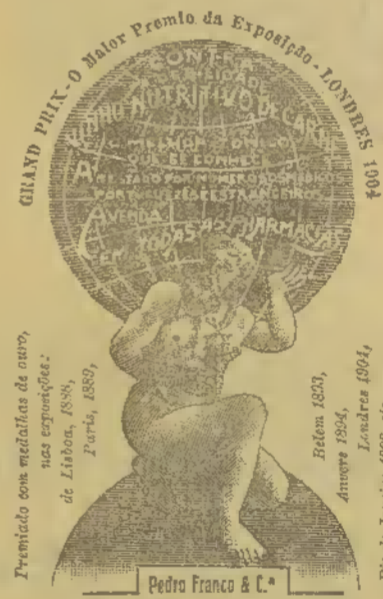 GRAND PRIX - O Maior Premio da Exposição - LONDRES 1904
CONTRA
A DEBILIDADE
VINHO NUTRITIVO DE CARNE
O MELHOR TONICO
QUE SE CONHECE
ATTESTADO POR NUMEROSOS MEDICOS
PORTUGUEZES E ESTRANGEIROS
A VENDA
EM TODAS AS PHARMACIAS
Premiado com medalhas de ouro,
nas exposições:
de Lisboa, 1888,
Paris, 1889,
Belem 1893,
Anvers 1894,
Londres 1904,
Pedro Franco & C.ª